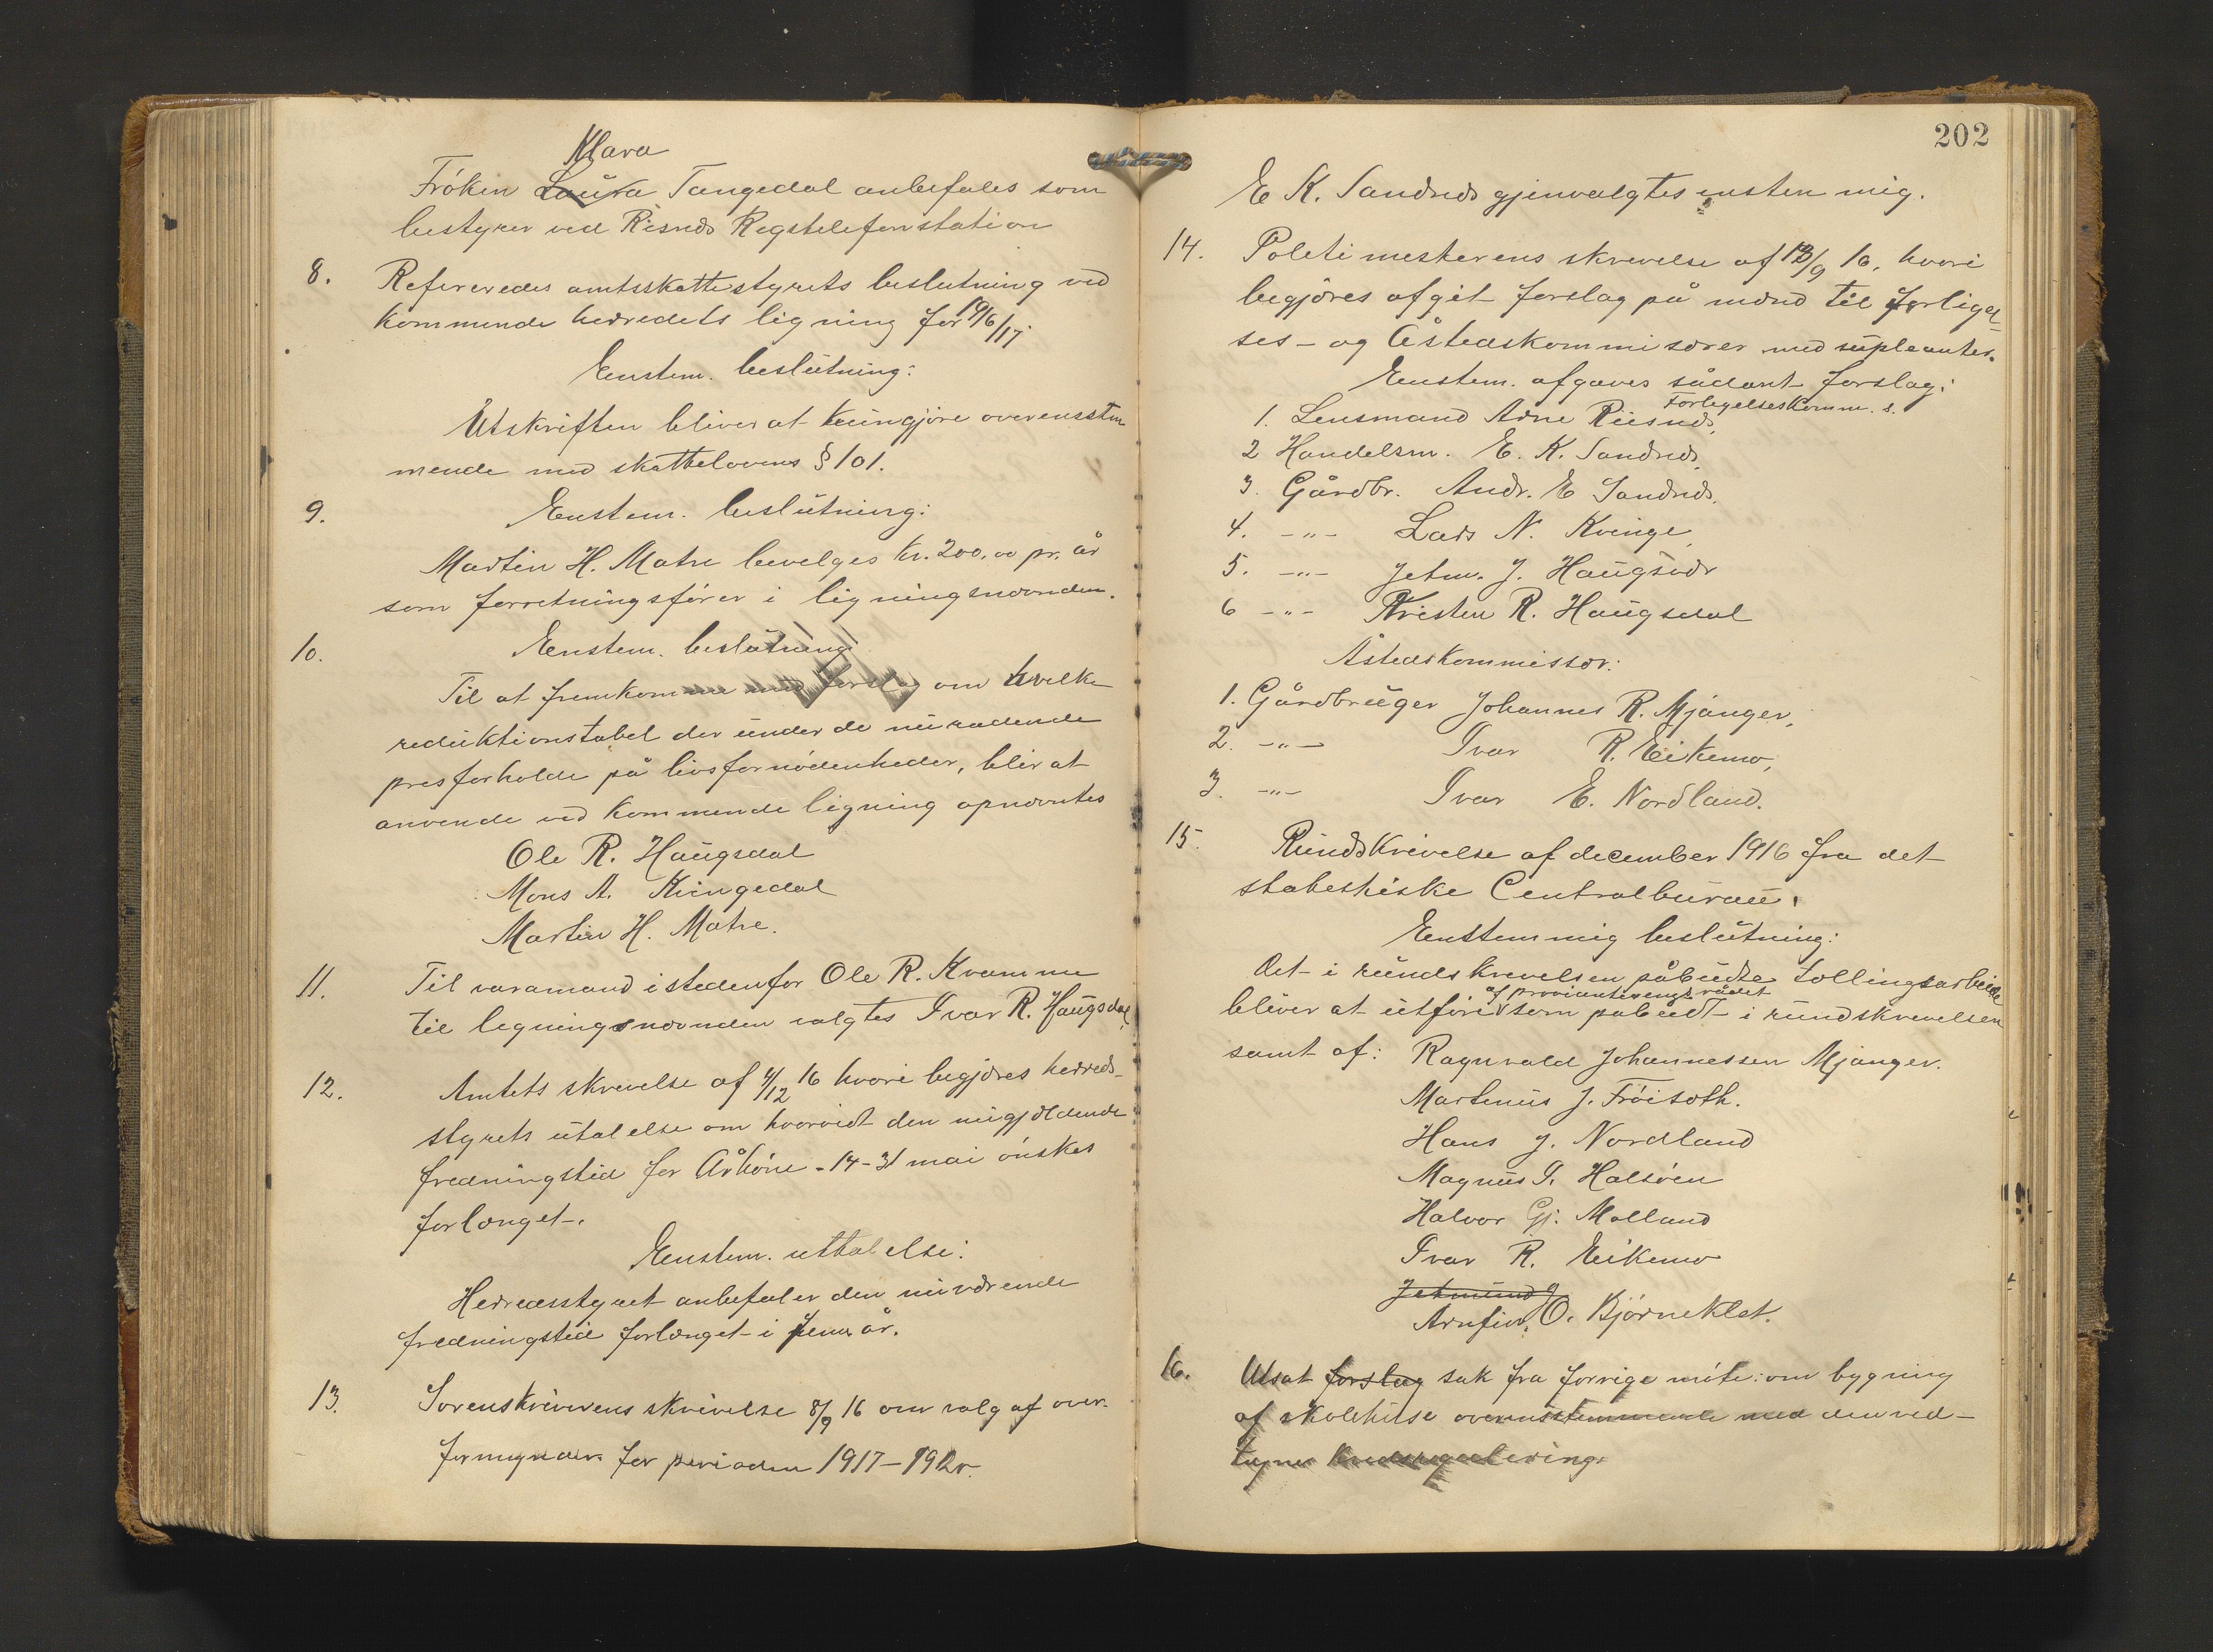 Klara
Frøken Laura Tangedal anbefales som
bestyrer ved Risnes Rigstelefonstation
8. Refereredes amtsskattestyrets beslutning ved
kommende herredets ligning for 1916/17
Enstem. beslutning:
Utskriften bliver at kungjøre overensstem
mende med skattelovens § 101.
9. Enstem. beslutning:
Martin H. Matre bevelges kr. 200,00 pr. år
som forretningsfører i ligningsnævnden.
10. Enstem. beslutning
Til at fremkomme med forslag om hvilke
reduktionstabel der under de nu radende
presforholde på livsfornødenheder, blir at
anvende ved kommende ligning opnævntes
Ole R. Haugsdal
Mons A. Kringedal
Martin H. Matre.
11. Til varamand istedenfor Ole R. Kvamme
til ligningsnævnden valgtes Ivar R. Haugsdal
12. Amtets skrivelse af 4/12 16 hvori begjæres herreds-
styrets utalelse om hvorvidt den nugjældende
fredningstid for Århøne - 14-31 mai ønskes
forlænget.
Enstem. uttalelse:
Herredsstyret anbefaler den nuværende
fredningstid forlænget i fem år.
13. Sorenskriverens skrivelse 8/9 16 om valg af over-
formynder for perioden 1917-1920.
202
E K. Sandnes gjenvalgtes ensten mig.
14. Politimesterens skrivelse af 13/9 16, hvori
begjæres afgit forslag på mænd til forligel
ses- og Åstedskommisærer med supleanter.
Enstem. afgaves sådant forslag:
Forligelseskomm. s.
1. Lensmand Arne Riisnes,
2 Handelsm. E. K. Sandnes,
3. Gårdbr. Andr. E Sandnes,
4. -"- Lars N. Kvinge,
5. -"- Jetm. J. Haugsvær
6 -"- Kristen R. Haugsdal
Åstedskommissær:
1. Gårdbruger Johannes R. Mjanger,
2. -"- Ivar R. Eikemo,
3. -"- Ivar E. Nordland.
15. Rundskrivelse af december 1916 fra det
stabestiske Centralbureau.
Enstemmig beslutning:
Det i rundskrivelsen påbudte tællingsarbeide
af provianteringsrådet
bliver at utføre som påbudt i rundskrivelsen
samt af: Ragnvald Johannessen Mjanger.
Martinus J. Frøisæth.
Hans J. Nordland
Magnus I. Halsøen
Halvor Gj. Molland
Ivar R. Eikemo
Jetmund J
Arnfin O. Bjørneklet.
16. Utsat forslag sak fra forrige møte: om bygning
af skolehuse overensstemmende med den ved-
tagne kredsregulering.